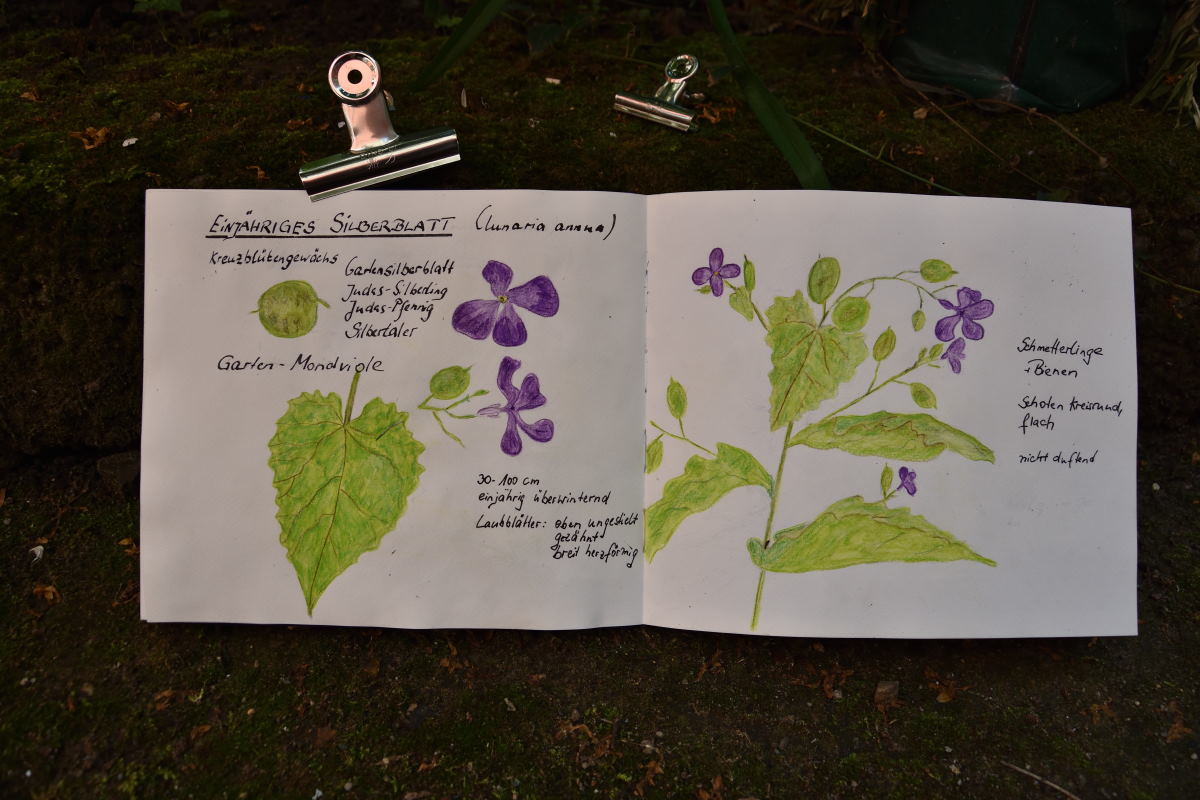 EINJÄHRIGES SILBERBLATT (lunaria annua)
Kreuzblütengewächs
Gartensilberblatt
Judas-Silberling
Judas-Pfennig
Silbertaler
Garten-Mondviole
30-100 cm
einjährig überwinternd
Laubblätter: oben ungestielt
gezähnt
breit herzförmig
Schmetterlinge
+ Bienen
Schoten kreisrund,
flach
nicht duftend